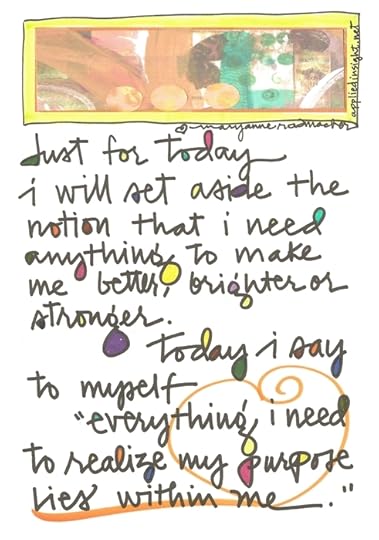 appliedinsight.net
maryanne radmacher
Just for today
i will set aside the
notion that i need
anything to make
me better, brighter or
stronger.
Today i say
to myself
"everything i need
to realize my purpose
lies within me."